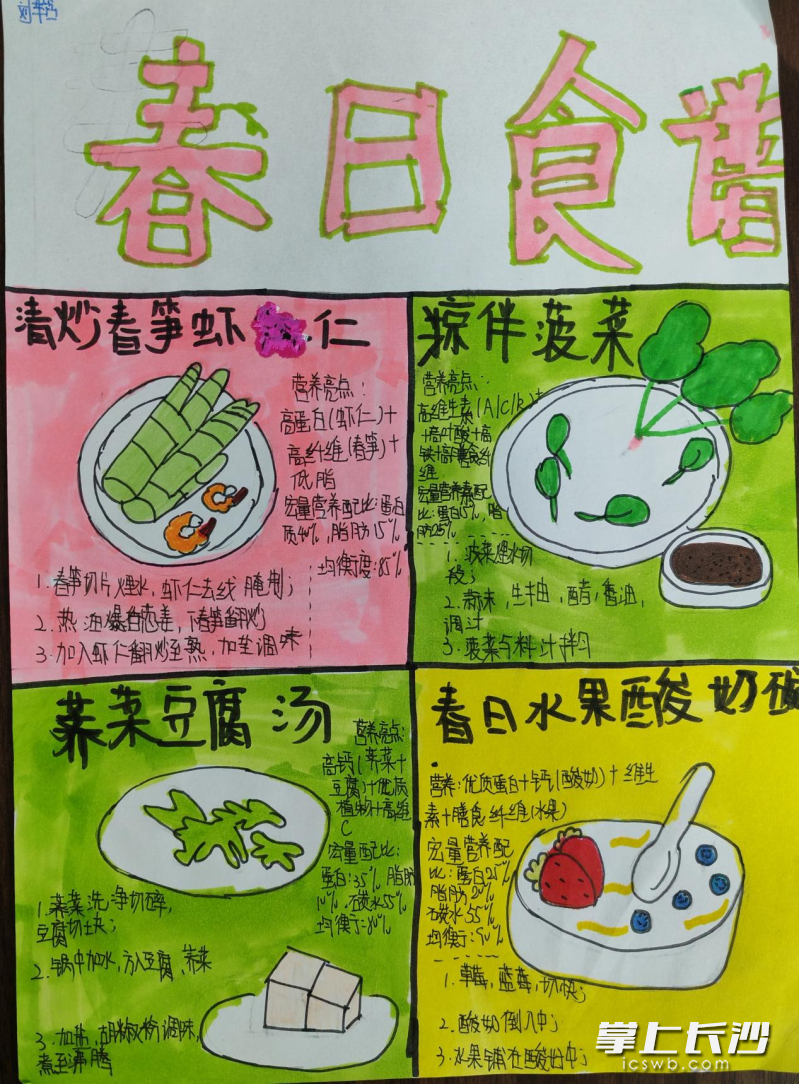 春日食谱
清炒春笋虾仁
营养亮点:
高蛋白(虾仁)+
高纤维(春笋)+
低脂
宏量营养配比:蛋白
质40%,脂肪15%
均衡度:85%
1.春笋切片焯水,虾仁去线腌制;
2.热油爆葱姜,下春笋翻炒
3.加入虾仁翻炒至熟,加盐调味
凉伴菠菜
营养亮点:
高维生素(A/C/K)+
+高叶酸+高
铁+高膳食纤
维
宏量营养素配
比:蛋白15%,脂
肪25%
1.菠菜焯水切
段;
2.蒜末,生抽,醋,香油,
调汁
3.菠菜与料汁拌匀
荠菜豆腐汤
营养亮点:
高钙(荠菜+
豆腐)+优质
植物+高维
C
宏量配比:
蛋白:35%,脂肪
10%,碳水55%
均衡于:80%
1.荠菜洗净切碎,
豆腐切块;
2.锅中加水,放入豆腐,荠菜
3.加盐,胡椒粉调味,
煮至沸腾
春日水果酸奶碗
营养:优质蛋白+钙(酸奶)+维生
素+膳食纤维(水果)
宏量营养配
比:蛋白25%
脂肪20%
碳水55%
均衡于:90%
1.草莓,蓝莓,切块;
2.酸奶倒入中;
3.水果铺在酸奶中;
掌上长沙
icswb.com